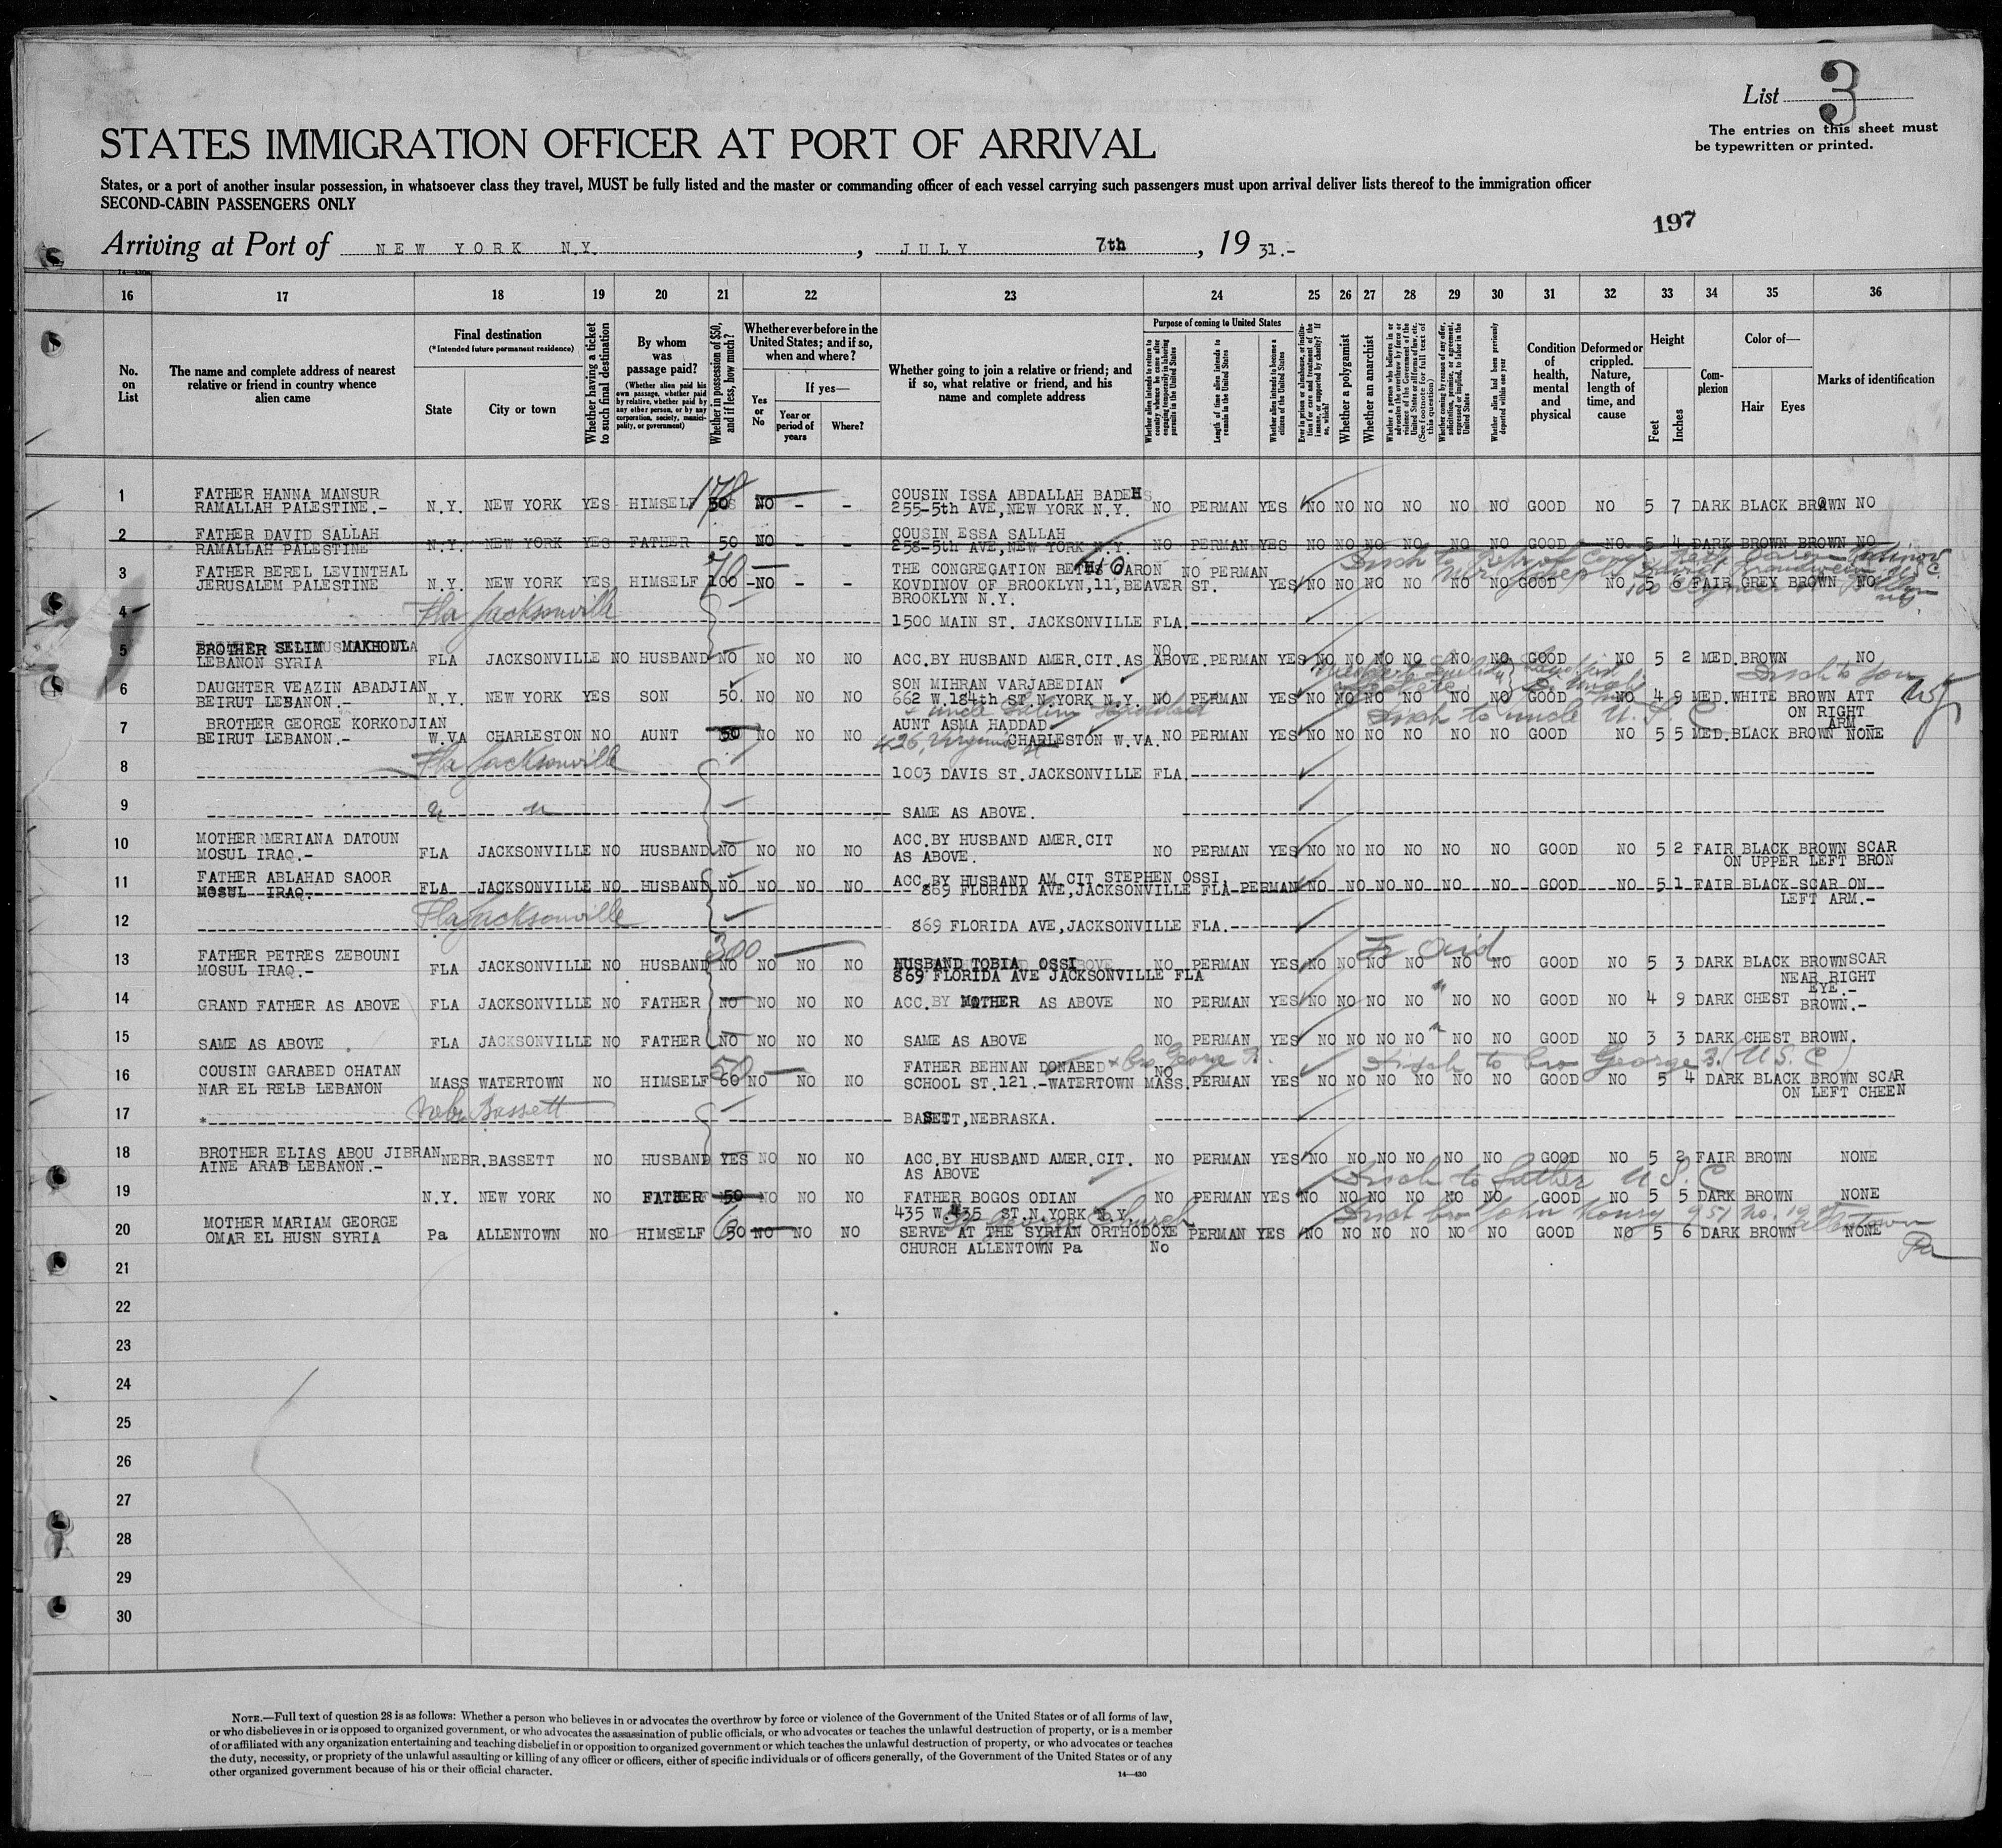 List 3
The entries on this sheet must
be typewritten or printed.
STATES IMMIGRATION OFFICER AT PORT OF ARRIVAL
States, or a port of another insular possession, in whatsoever class they travel, MUST be fully listed and the master or commanding officer of each vessel carrying such passengers must upon arrival deliver lists thereof to the immigration officer
SECOND-CABIN PASSENGERS ONLY
197
Arriving at Port of NEW YORK N.Y. , JULY 7th , 19 31.-
16 17 18 19 20 21 22 23 24 25 26 27 28 29 30 31 32 33 34 35 36
No. on List
The name and complete address of nearest relative or friend in country whence alien came
Final destination
(*Intended future permanent residence)
State
City or town
Whether having a ticket to such final destination
By whom was passage paid?
(Whether alien paid his own passage, whether paid by relative, whether paid by any other person, or by any corporation, society, municipality, or government)
Whether in possession of $50, and if less, how much?
Whether ever before in the United States; and if so, when and where?
Yes or No
If yes—
Year or period of years
Where?
Whether going to join a relative or friend; and if so, what relative or friend, and his name and complete address
Purpose of coming to United States
Whether alien intends to return to country whence he came after engaging temporarily in laboring pursuits in the United States
Length of time alien intends to remain in the United States
Whether alien intends to become a citizen of the United States
Ever in prison or almshouse, or institution for care and treatment of the insane, or supported by charity? If so, which?
Whether a polygamist
Whether an anarchist
Whether a person who believes in or advocates the overthrow by force or violence of the Government of the United States or all forms of law, etc. (See footnote for full text of this question)
Whether coming by reason of any offer, solicitation, promise, or agreement, expressed or implied, to labor in the United States
Whether alien had been previously deported within one year
Condition of health, mental and physical
Deformed or crippled. Nature, length of time, and cause
Height
Feet
Inches
Complexion
Color of—
Hair Eyes
Marks of identification
1 FATHER HANNA MANSUR COUSIN ISSA ABDALLAH BADEHS
RAMALLAH PALESTINE.- N.Y. NEW YORK YES HIMSELF 178 50 NO - - 255-5th AVE,NEW YORK N.Y. NO PERMAN YES NO NO NO NO NO NO GOOD NO 5 7 DARK BLACK BROWN NO
2 FATHER DAVID SALLAH COUSIN ESSA SALLAH
RAMALLAH PALESTINE N.Y. NEW YORK YES FATHER 50 NO 258-5th AVE,NEW YORK N.Y. NO PERMAN YES NO NO NO NO NO NO GOOD NO 5 4 DARK BROWN BROWN NO
3 FATHER BEREL LEVINTHAL THE CONGREGATION BETHS 10 AARON NO PERMAN
JERUSALEM PALESTINE N.Y. NEW YORK YES HIMSELF 70 100 -NO - - KOVDINOV OF BROOKLYN,11,BEAVER ST. YES NO NO NO NO NO NO GOOD NO 5 6 FAIR GREY BROWN NO
BROOKLYN N.Y.
4 Fla Jacksonville 1500 MAIN ST. JACKSONVILLE FLA.
5 BROTHER SELIM MAKHOUL NO
LEBANON SYRIA FLA JACKSONVILLE NO HUSBAND NO NO NO NO ACC.BY HUSBAND AMER.CIT.AS ABOVE. PERMAN YES NO NO NO NO NO NO GOOD NO 5 2 MED.BROWN NO
6 DAUGHTER VEAZIN ABADJIAN SON MIHRAN VARJABEDIAN Disch to son
BEIRUT LEBANON.- N.Y. NEW YORK YES SON 50. NO NO NO 662 W.184th ST.N.YORK N.Y. NO PERMAN YES NO NO NO NO NO NO GOOD NO 4 9 MED.WHITE BROWN ATT
ON RIGHT
ARM.-
uncle Salim Haddad
7 BROTHER GEORGE KORKODJIAN AUNT ASMA HADDAD Disch to uncle U.S.C
BEIRUT LEBANON.- W.VA CHARLESTON NO AUNT 50 NO NO NO 426, Virginia St CHARLESTON W.VA. NO PERMAN YES NO NO NO NO NO NO GOOD NO 5 5 MED.BLACK BROWN NONE
8 Fla Jacksonville 1003 DAVIS ST.JACKSONVILLE FLA.
9 " " SAME AS ABOVE.
10 MOTHER MERIANA DATOUN ACC.BY HUSBAND AMER.CIT
MOSUL IRAQ.- FLA JACKSONVILLE NO HUSBAND NO NO NO NO AS ABOVE. NO PERMAN YES NO NO NO NO NO NO GOOD NO 5 2 FAIR BLACK BROWN SCAR
ON UPPER LEFT BRON
11 FATHER ABLAHAD SAOOR ACC.BY HUSBAND AM CIT STEPHEN OSSI.
MOSUL IRAQ. FLA JACKSONVILLE NO HUSBAND NO NO NO NO 869 FLORIDA AVE,JACKSONVILLE FLA-PERMAN NO NO NO NO NO NO GOOD NO 5 1 FAIR BLACK SCAR ON
LEFT ARM.-
12 Fla Jacksonville 869 FLORIDA AVE,JACKSONVILLE FLA.
13 FATHER PETRES ZEBOUNI 300 HUSBAND TOBIA OSSI
MOSUL IRAQ.- FLA JACKSONVILLE NO HUSBAND NO NO NO NO 869 FLORIDA AVE JACKSONVILLE FLA NO PERMAN YES NO NO NO NO NO NO GOOD NO 5 3 DARK BLACK BROWN SCAR
NEAR RIGHT
EYE.-
14 GRAND FATHER AS ABOVE FLA JACKSONVILLE NO FATHER NO NO NO NO ACC.BY MOTHER AS ABOVE NO PERMAN YES NO NO NO NO NO NO GOOD NO 4 9 DARK CHEST BROWN.-
15 SAME AS ABOVE FLA JACKSONVILLE NO FATHER NO NO NO NO SAME AS ABOVE NO PERMAN YES NO NO NO NO NO NO GOOD NO 3 3 DARK CHEST BROWN.
16 COUSIN GARABED OHATAN 50 FATHER BEHNAN DONABED + bro George NO Disch to bro George (U.S.C)
NAR EL RELB LEBANON MASS WATERTOWN NO HIMSELF 60 NO NO NO SCHOOL ST.121.-WATERTOWN MASS. PERMAN YES NO NO NO NO NO NO GOOD NO 5 4 DARK BLACK BROWN SCAR
ON LEFT CHEEN
17 * Nebr Bassett BASETT,NEBRASKA.
18 BROTHER ELIAS ABOU JIBRAN ACC.BY HUSBAND AMER.CIT.
AINE ARAB LEBANON.- NEBR.BASSETT NO HUSBAND YES NO NO NO AS ABOVE NO PERMAN YES NO NO NO NO NO NO GOOD NO 5 2 FAIR BROWN NONE
Disch to father U.S.C
19 N.Y. NEW YORK NO FATHER 50 NO NO NO FATHER BOGOS ODIAN NO PERMAN YES NO NO NO NO NO NO GOOD NO 5 5 DARK BROWN NONE
435 W.435 ST.N.YORK N.Y.
St George Church
20 MOTHER MARIAM GEORGE
OMAR EL HUSN SYRIA Pa ALLENTOWN NO HIMSELF 50 NO NO NO SERVE AT THE SYRIAN ORTHODOXE PERMAN YES NO NO NO NO NO NO GOOD NO 5 6 DARK BROWN NONE
CHURCH ALLENTOWN Pa No
Allentown Pa
21
22
23
24
25
26
27
28
29
30
NOTE.—Full text of question 28 is as follows: Whether a person who believes in or advocates the overthrow by force or violence of the Government of the United States or of all forms of law,
or who disbelieves in or is opposed to organized government, or who advocates the assassination of public officials, or who advocates or teaches the unlawful destruction of property, or is a member
of or affiliated with any organization entertaining and teaching disbelief in or opposition to organized government or which teaches the unlawful destruction of property, or who advocates or teaches
the duty, necessity, or propriety of the unlawful assaulting or killing of any officer or officers, either of specific individuals or of officers generally, of the Government of the United States or of any
other organized government because of his or their official character.
14—430